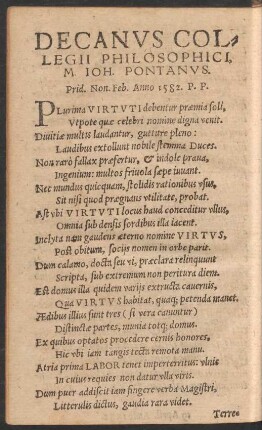 DECANVS COL-
LEGII PHILOSOPHICI,
M. IOH. PONTANVS.
Prid. Non. Feb. Anno 1582. P. P.
PLurima VIRTVTI debentur præmia soli,
Vtpote quæ celebri nomine digna venit.
Divitiæ multis laudantur, gutture pleno:
Laudibus extollunt nobile stemma Duces.
Non rarò fallax præfertur, & indole prava,
Ingenium: multos frivola sæpe iuvant.
Nec mundus quicquam, stolidis rationibus vsus,
Sit nisi quod præagnas vtilitate, probat.
Ast vbi VIRTVTI locus haud conceditur vllus,
Omnia sub densis sordibus illa iacent.
Inclyta nam gaudens æterno nomine VIRTVS,
Post obitum, socijs nomen in orbe parit.
Dum calamo, docta seu vi, præclara relinquunt
Scripta, sub extremum non peritura diem.
Est domus illa quidem varijs extructa cavernis,
Qua VIRTVS habitat, quaq; petenda manet.
Ædibus illius sunt tres (si vera canuntur)
Distinctæ partes, munia totq; domus.
Ex quibus optatos procedere cernis honores,
Hic vbi iam tangis tecta remota manu.
Atria prima LABOR tenet imperterritus: vlnis
In cuius requies non datur vlla viris.
Dum puer addiscit iam fingere verba Magistri,
Litterulis dictus, gaudia rara videt.
Terre-